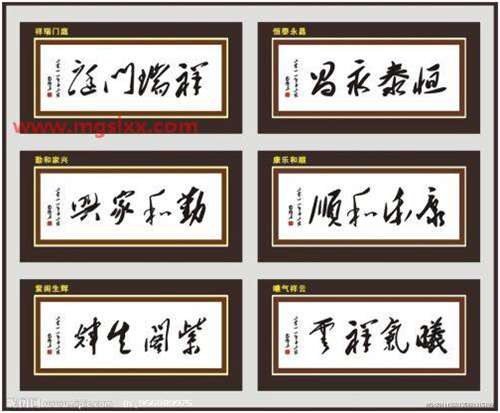 祥瑞门庭
祥瑞門庭
恒泰永昌
恒泰永昌
www.mgslxx.com
勤和家兴
勤和家興
康乐和顺
康樂和順
紫阁生辉
紫閣生輝
曦气祥云
曦氣祥雲